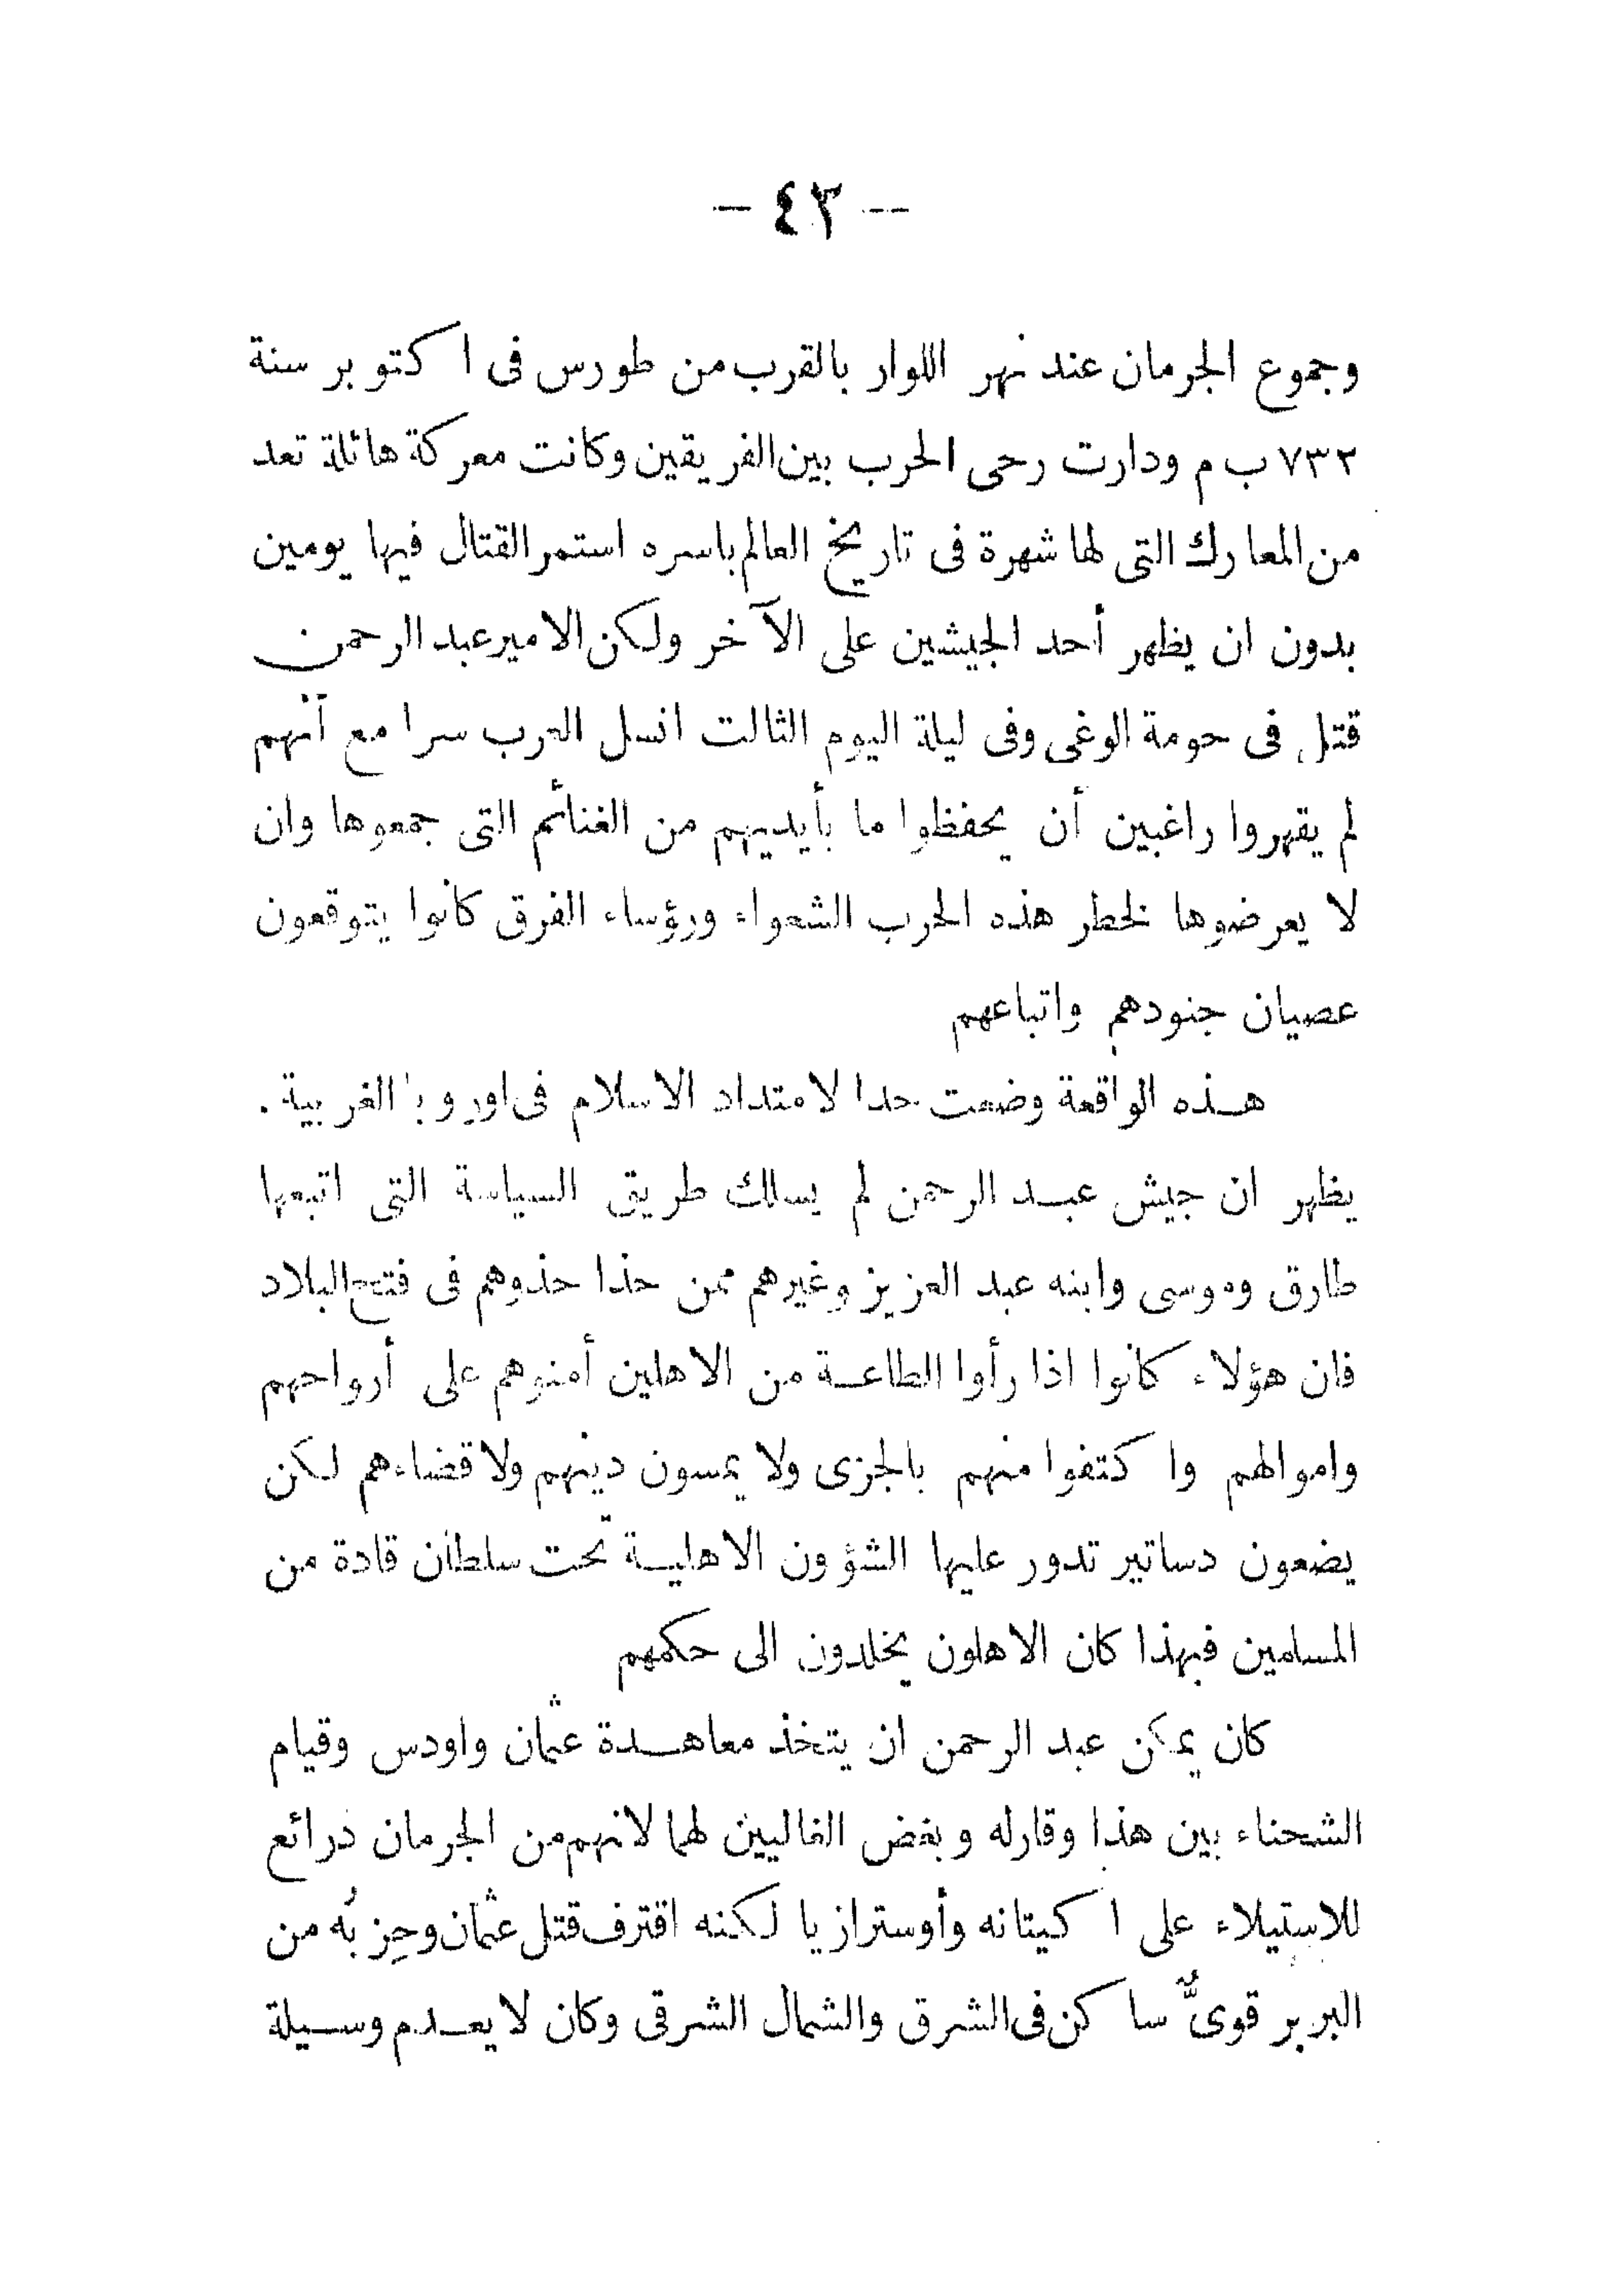 -- ٤٣ -
وجموع الجرمان عند نهر اللوار بالقرب من طورس فى اكتوبر سنة
٧٣٢ ب م ودارت رحى الحرب بين الفريقين وكانت معركة هائلة تعد
من المعارك التى لها شهرة فى تاريخ العالم باسره استمر القتال فيها يومين
بدون ان يظهر أحد الجيشين على الآخر ولكن الامير عبد الرحمن
قتل فى حومة الوغى وفى ليلة اليوم الثالت انسل العرب سرا مع أنهم
لم يقهروا راغبين أن يحفظوا ما بأيديهم من الغنائم التى جمعوها وان
لا يعرضوها لخطر هذه الحرب الشعواء ورؤساء الفرق كانوا يتوقعون
عصيان جنودهم واتباعهم
هذه الواقعة وضعت حدا لامتداد الاسلام فى اوروبا الغربية .
يظهر ان جيش عبد الرحمن لم يسلك طريق السياسة التى اتبعها
طارق وموسى وابنه عبد العزيز وغيرهم ممن حذا حذوهم فى فتح البلاد
فان هؤلاء كانوا اذا رأوا الطاعة من الاهلين أمنوهم على أرواحهم
واموالهم واكتفوا منهم بالجزى ولا يمسون دينهم ولا قضاءهم لكن
يضعون دساتير تدور عليها الشؤون الاهلية تحت سلطان قادة من
المسلمين فبهذا كان الاهلون يخلدون الى حكمهم
كان يمكن عبد الرحمن ان يتخذ معاهدة عثمان واودس وقيام
الشحناء بين هذا وقارله وبغض الغاليين لهما لانهم من الجرمان ذرائع
للاستيلاء على اكيتانه وأوسترازيا لكنه اقترف قتل عثمان وحِزبُه من
البربر قوىٌّ ساكن فى الشرق والشمال الشرقى وكان لا يعدم وسيلة